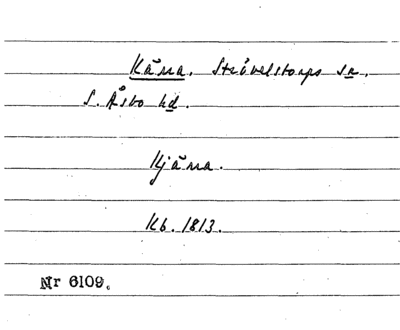 Kärra. Strövelstorps sn.
S. Åsbo hd.
Kjärra.
Kb. 1813.
Nr 6109.